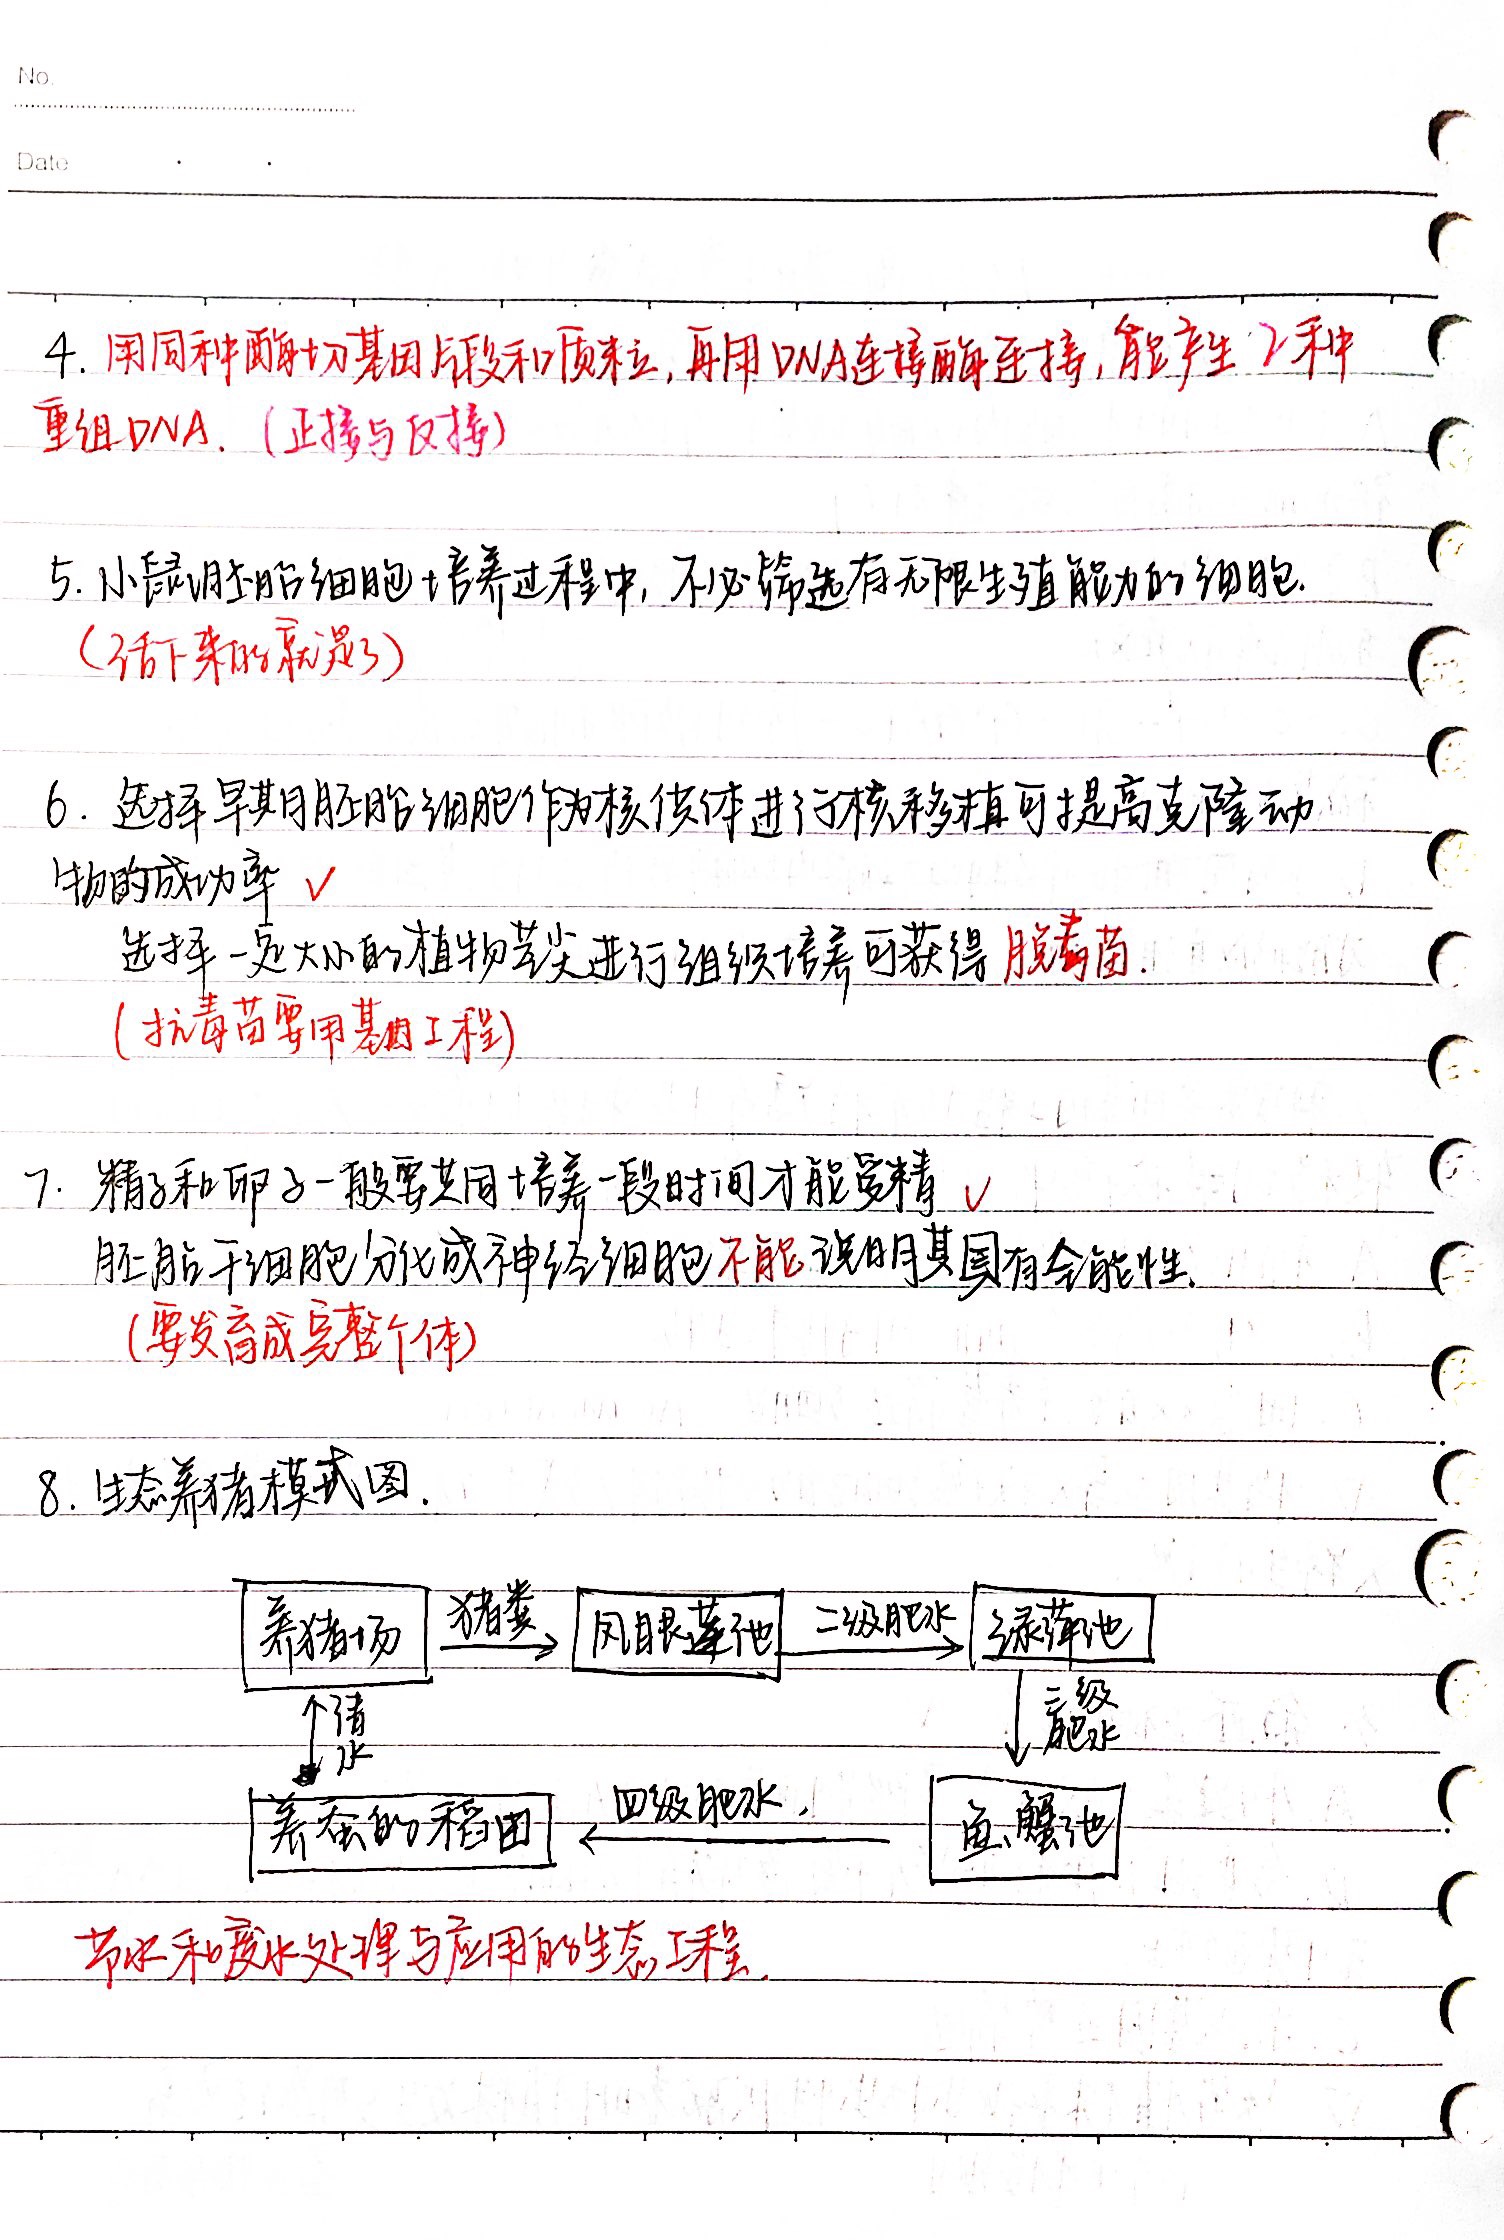 No.
Date
4. 用同种酶切基因片段和质粒,再用DNA连接酶连接,能产生2种
重组DNA.(正接与反接)
5. 小鼠胚胎细胞培养过程中,不必筛选有无限生殖能力的细胞.
(活下来的就是)
6. 选择早期胚胎细胞作为核供体进行核移植可提高克隆动
物的成功率 ✓
选择一定大小的植物茎尖进行组织培养可获得脱毒苗.
(抗毒苗要用基因工程)
7. 精子和卵子一般要共同培养一段时间才能受精 ✓
胚胎干细胞分化成神经细胞不能说明其具有全能性.
(要发育成完整个体)
8. 生态养猪模式图.
养猪场 猪粪 凤眼莲池 二级肥水 绿萍池
清水
三级肥水
养蚕的稻田 四级肥水. 鱼、蟹池
节水和废水处理与应用的生态工程.